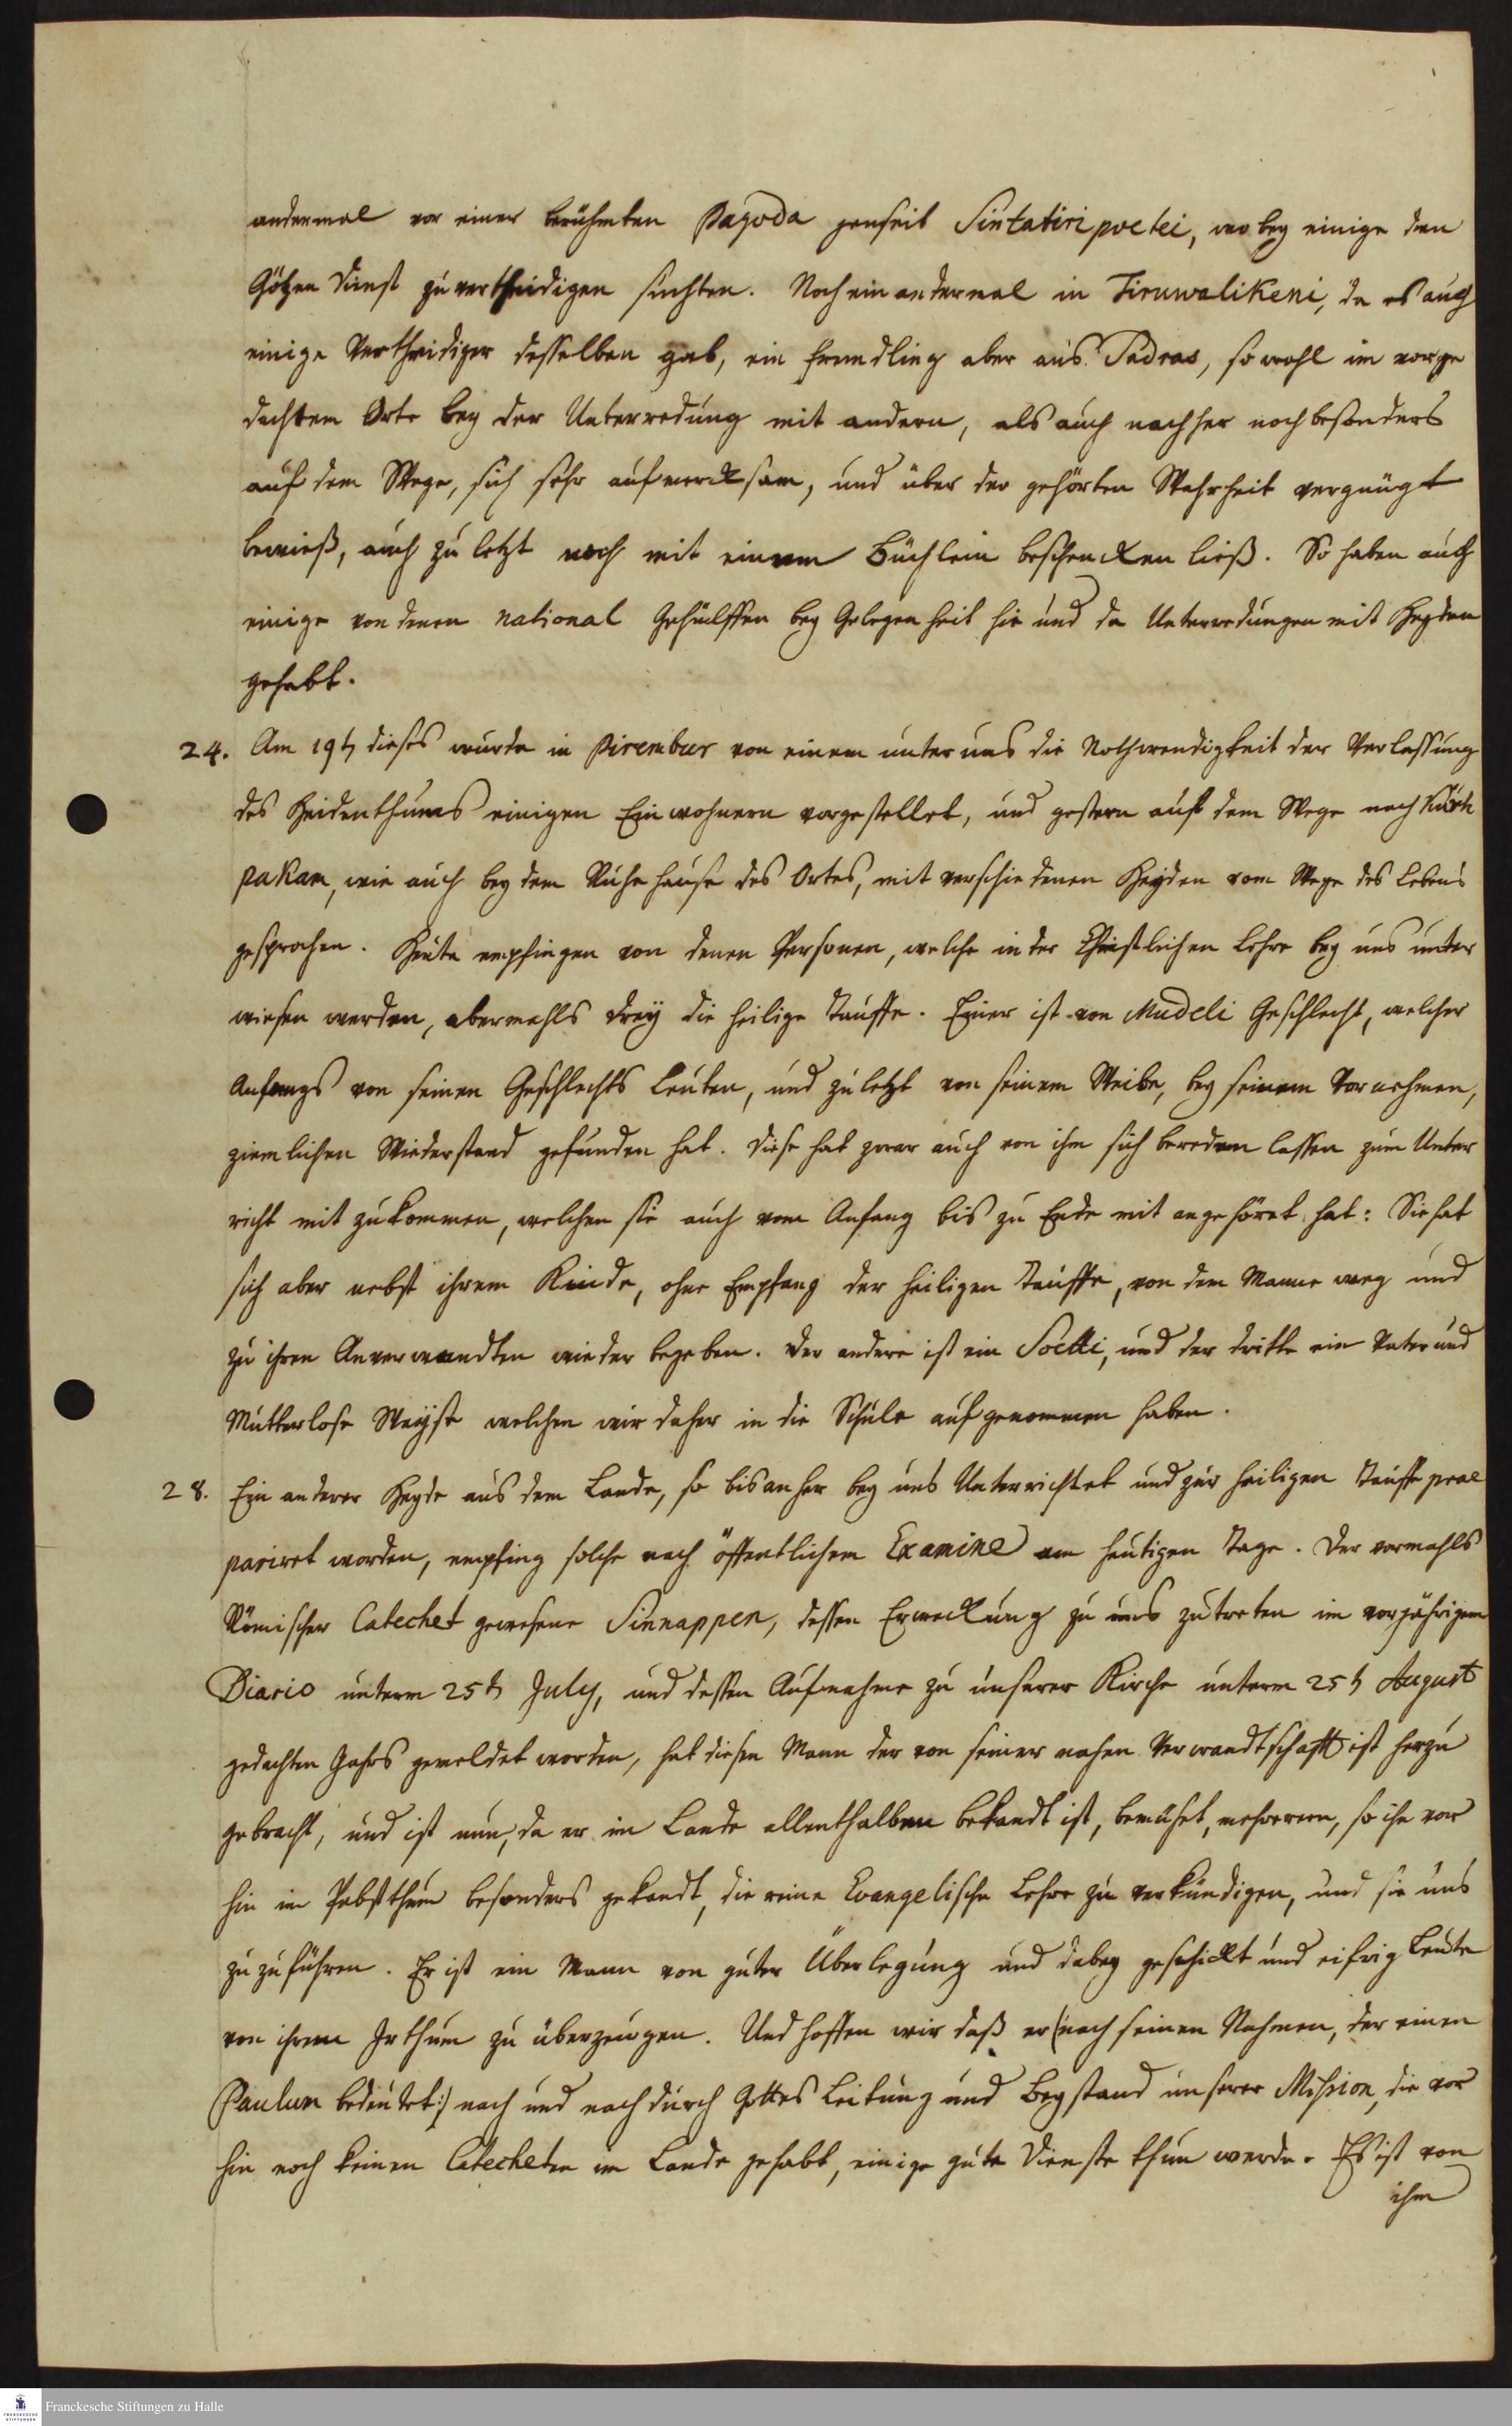 andermal vor einer berühmten Pagoda jenseit Sintatiripoetei, wobey einige den
Götzen Dienst zu vertheidigen suchten. Noch ein andermal in Tiruwalikeni, da es auch
einige Vertheidiger desselben gab, ein Fremdling aber aus Sadras, so wohl im vorge
dachtem Orte bey der Unterredung mit andern, als auch nachher noch besonders
auf dem Wege, sich sehr aufmercksam, und über der gehörten Wahrheit vergnügt
bewieß, auch zu letzt noch mit einem Büchlein beschencken ließ. So haben auch
einige von denen national Gehülffen bey Gelegenheit hie und da Unterredungen mit Heyden
gehabt.
24. Am 19t dieses wurde in Pirembur von einem unter uns die Nothwendigkeit der Verlassung
des Heidenthums einigen Einwohnern vorgestellet, und gestern auf dem Wege nach
pakam, wie auch bey dem Ruhehause des Ortes, mit verschiedenen Heyden vom Wege des Lebens
gesprochen. Heute empfingen von denen Personen, welche in der Christlichen Lehre bey uns unter
wiesen werden, abermahls drey die heilige Tauffe. Einer ist von Mudeli Geschlecht, welcher
Anfangs von seinen Geschlechts Leuten, und zu letzt von seinem Weibe, bey seinem Vornehmen,
ziemlichen Wiederstand gefunden hat. Diese hat zwar auch von ihm sich bereden lassen zum Unter
richt mit zu kommen, welchen sie auch vom Anfang bis zu Ende mit angehöret hat: Sie hat
sich aber nebst ihrem Kinde, ohne Empfang der heiligen Tauffe, von dem Manne weg und
zu ihren Anverwandten wieder begeben. Der andere ist ein Soetti, und der dritte ein Vater und
Mutterlose Wayse welchen wir daher in die Schule aufgenommen haben.
28. Ein anderer Heyde aus dem Lande, so bis anher bey uns Unterrichtet und zur heiligen Tauffe prae
pariret worden, empfing solche nach öffentlichem Examine am heutigen Tage. Der vormahls
Römischer Catechet gewesene Sinnappen, dessen Erweckung zu uns zu treten im vorjährigem
Diario unterm 25t July, und dessen Aufnahme zu unserer Kirche unterm 25t August
gedachten Jahrs gemeldet worden, hat diesen Mann der von seiner nahen Verwandtschafft ist herzu
gebracht, und ist nun, da er im Lande allenthalben bekandt ist, bemühet, mehrern, so ihn vor
hin im Pabstthum besonders gekandt, die reine Evangelische Lehre zu verkündigen, und sie uns
zuzuführen. Er ist ein Mann von guter Überlegung und dabey geschickt und eifrig Leute
von ihrem Irthum zu überzeugen. Und hoffen wir daß er (nach seinen Nahmen, der einen
Paulum bedeutet:) nach und nach durch Gottes Leitung und Beystand unserer Mission, die vor
hin noch keinen Catecheten im Lande gehabt, einige gute Dienste thun werde. Es ist von
ihm
Franckesche Stiftungen zu Halle